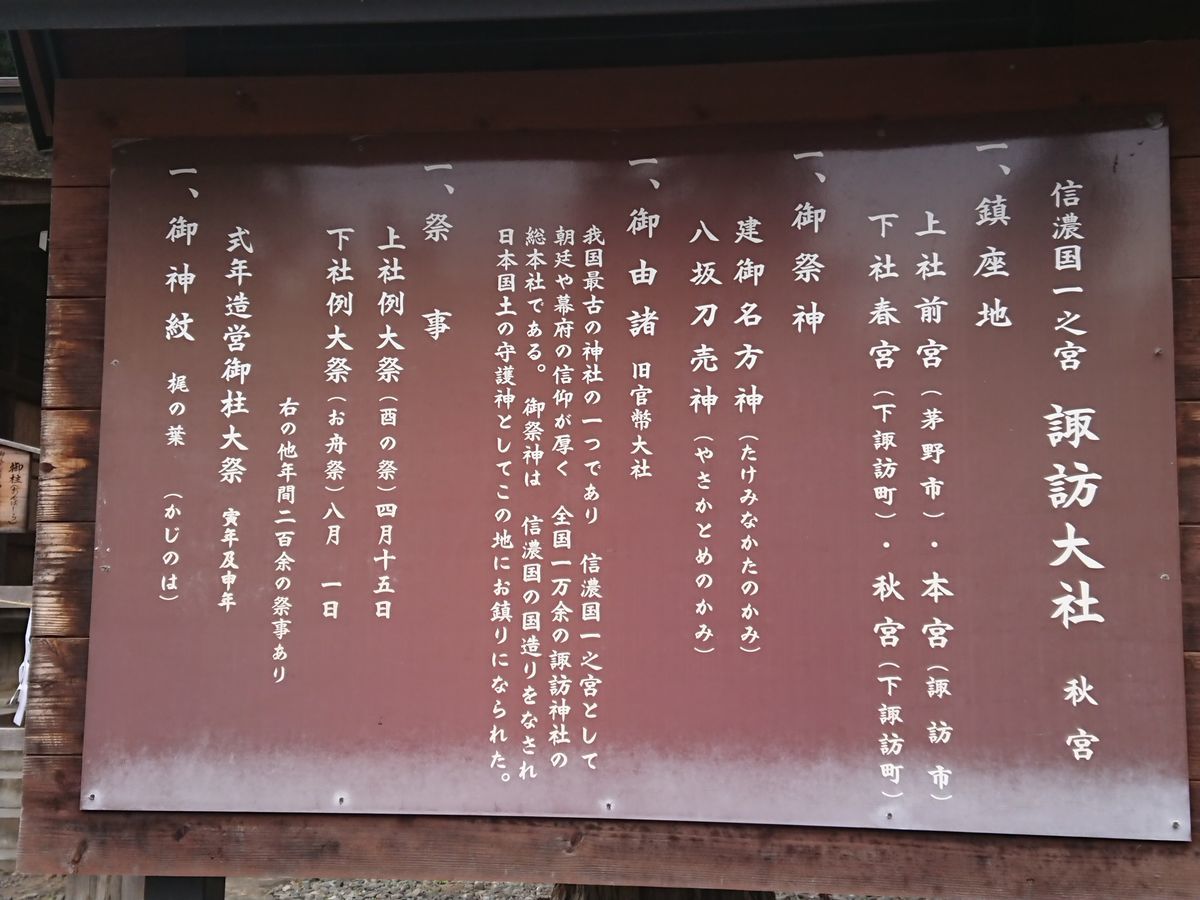 信濃国一之宮 諏訪大社 秋宮
一、鎮座地
上社前宮（茅野市）・本宮（諏訪市）
下社春宮（下諏訪町）・秋宮（下諏訪町）
一、御祭神
建御名方神（たけみなかたのかみ）
八坂刀売神（やさかとめのかみ）
一、御由諸 旧官幣大社
我国最古の神社の一つであり 信濃国一之宮として
朝廷や幕府の信仰が厚く 全国一万余の諏訪神社の
総本社である。 御祭神は 信濃国の国造りをなされ
日本国土の守護神としてこの地にお鎮りになられた。
一、祭事
上社例大祭（酉の祭）四月十五日
下社例大祭（お舟祭）八月 一日
右の他年間二百余の祭事あり
式年造営御柱大祭 寅年及申年
一、御神紋 梶の葉 （かじのは）
御柱